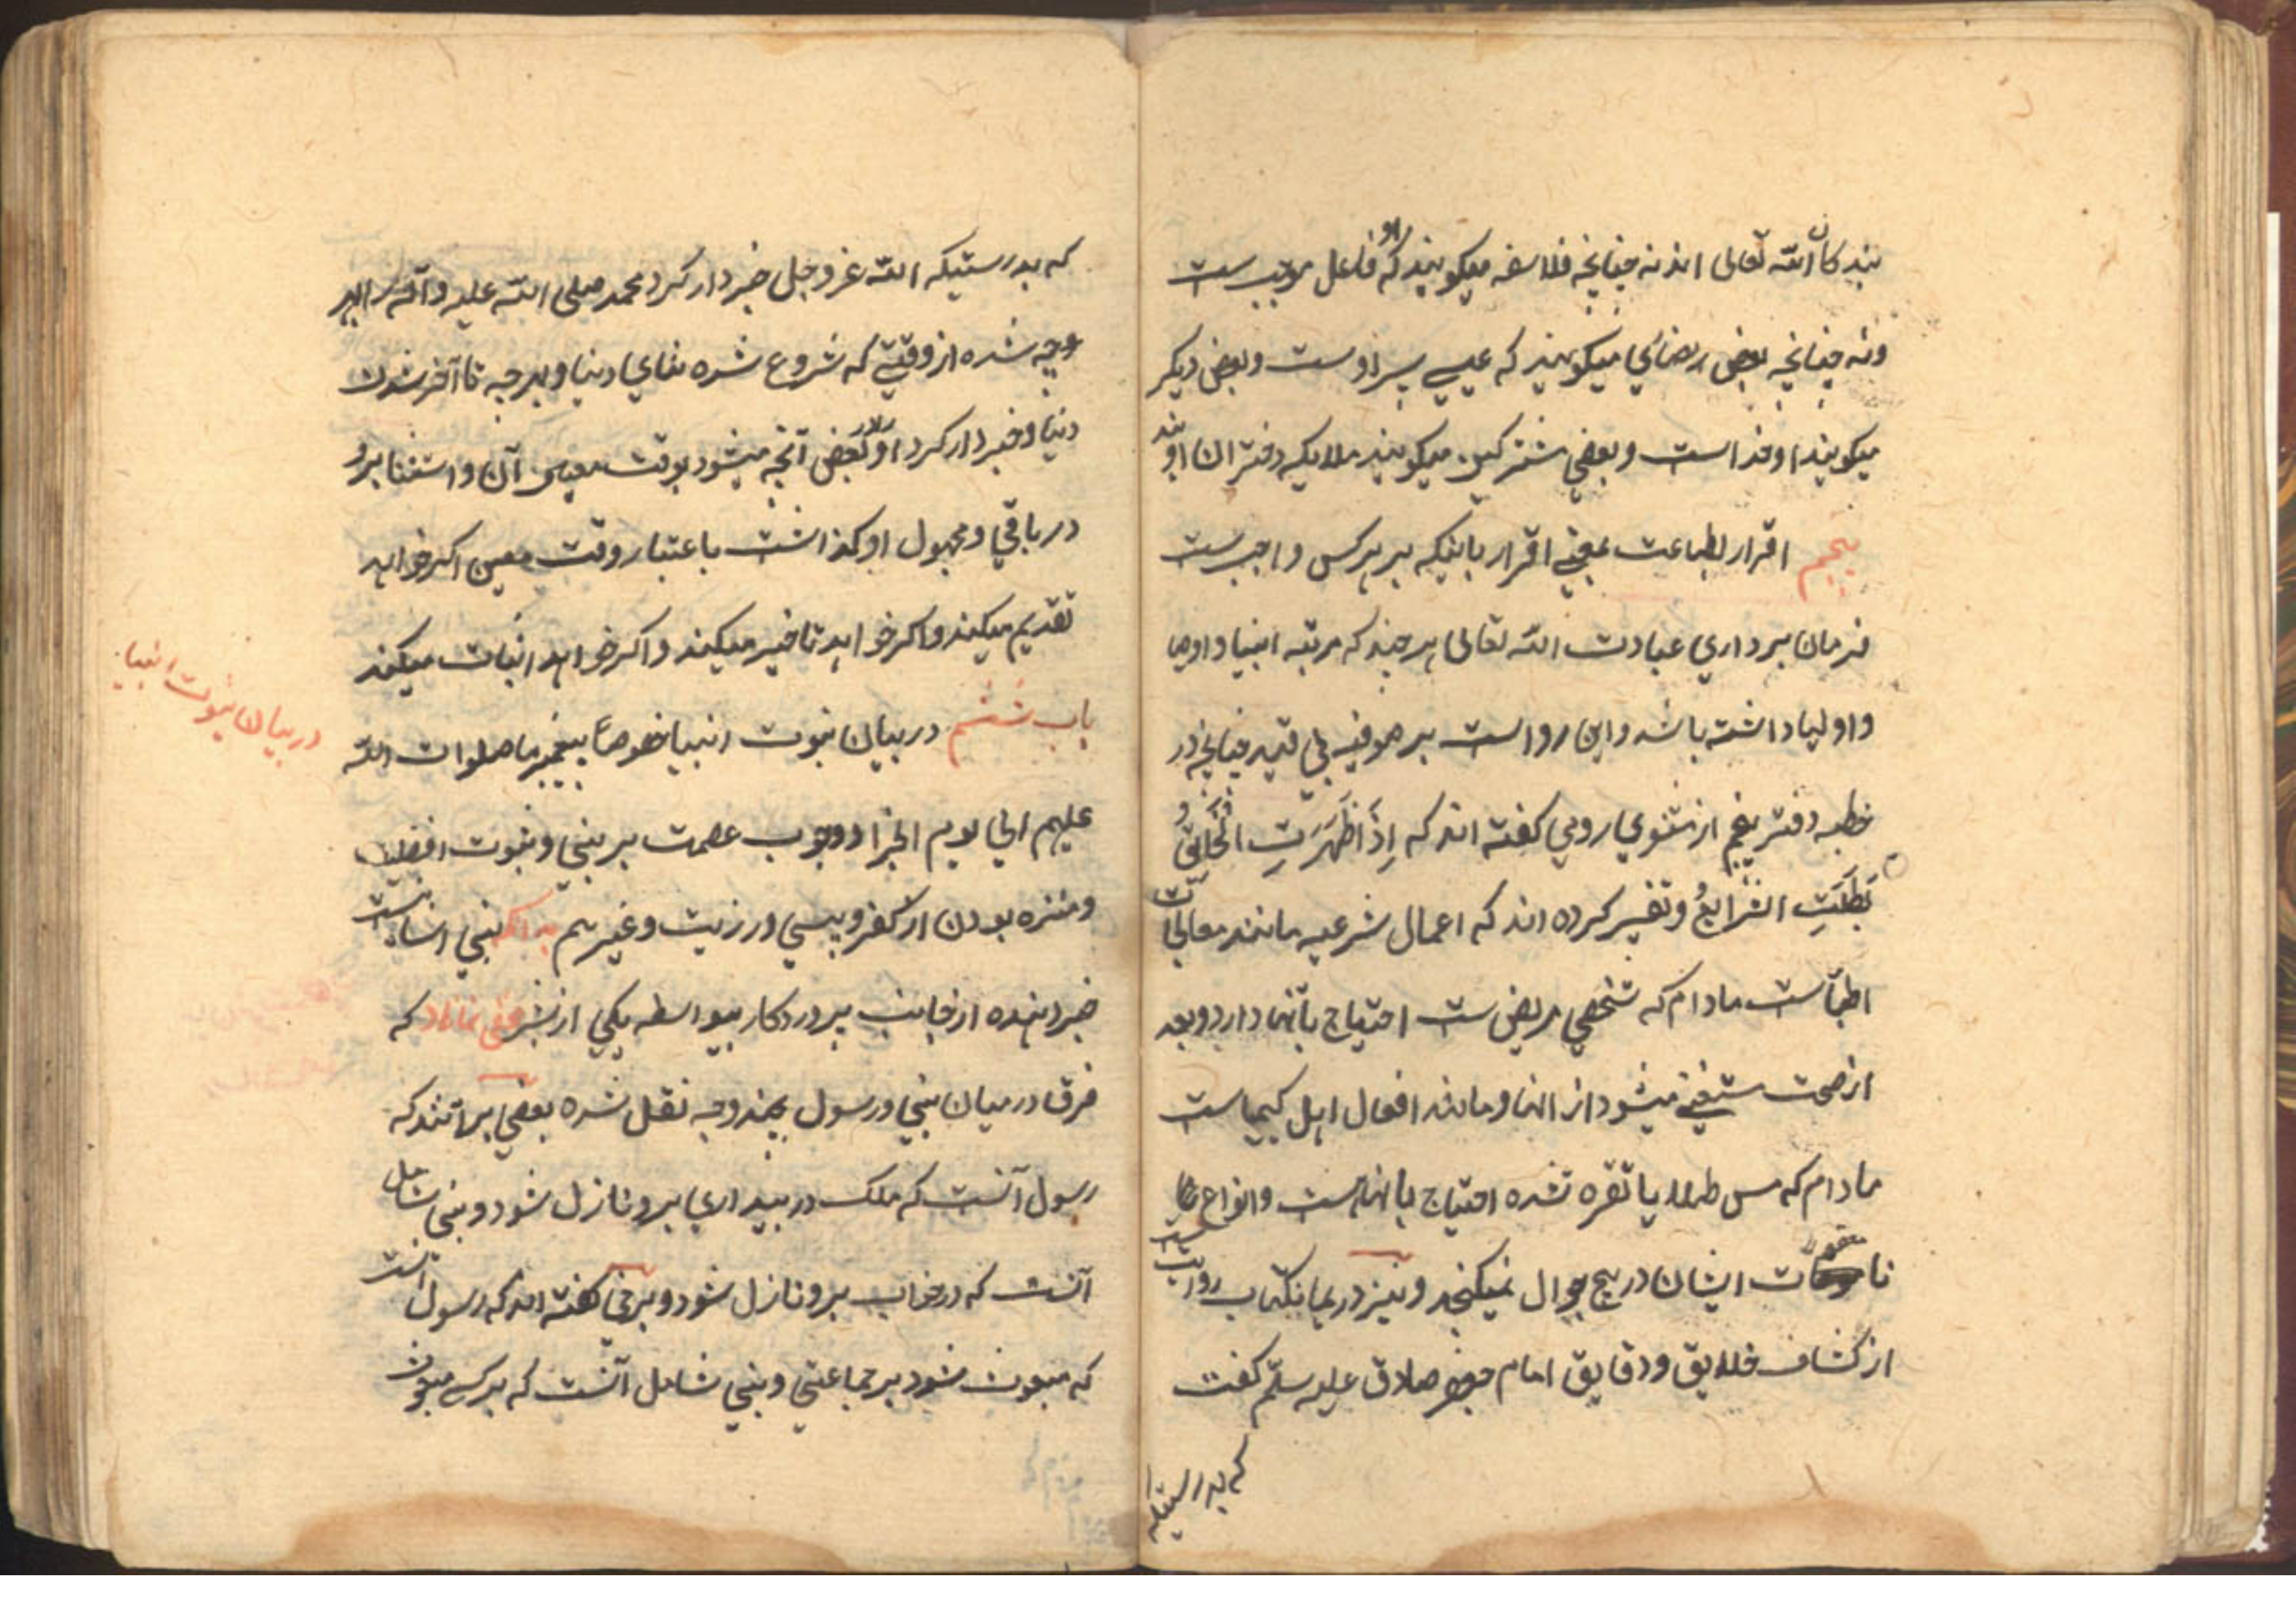 بندکان الله تعالی اند نه چنانچه فلاسفه میکویند که او فاعل موجب ست
ونه چنانچه بعض نصاری میکویند که عیسی پسر اوست وبعض دیکر
میکویند او خداست وبعضی مشرکین میکویند ملایکه دختران اویند
پنجم اقرار بطاعت یعنی اقرار باینکه بر هر کس واجب ست
فرمان برداری عبادت الله تعالی هر چند که مرتبه انبیا واوصیا
واولیا داشته باشد واین رد است بر صوفیه بی قید چنانچه در
خطبه دفتر پنجم از مثنوی رومی کفته اند که اِذَا ظَهَرَتِ الْحَقَایِقُ
بَطَلَتِ الشرایعُ وتفسیر کرده اند که اعمال شرعیه مانند معالجات
اطبّاست مادام که شخصی مریض ست احتیاج بآنها دارد وبعد
از صحت مستغنی میشود از انها ومانند افعال اهل کیمیاست
مادام که مس طلا یا نقره نشده احتیاج بانهاست وانواع
نامعقولات ایشان در هیچ جوال نمیکنجد ونیز در همانکتاب روایت ست
از کشاف حقایق ودقایق امام جعفر صادق علیه سلّم کفت
که بدرستیکه
که بدرستیکه الله عز وجل خبردار کرد محمد صلی الله علیه وآله را بهر
وجه شده از وقتی که شروع شده بنای دنیا وبهر چه تا آخر شدن
دنیا وخبردار کرد او را ببعض آنچه میشود بوقت معین آن واستثنا برو
در باقی ومجهول او کذاشت باعتبار وقت معین اکر خواهد
تقدیم میکند واکر خواهد تاخیر میکند واکر خواهد اثبات میکند
باب ششم در بیان نبوت انبیا خصوصاً پیغمبر ما صلوات الله
در بیان نبوت انبیا
علیهم الی یوم الجزا ووجوب عصمت بر نبی ونبوت افضلیت
ومنزه بودن از کفر وپیسی ورزیت وغیرهم بدانکه نبی انسانیست
خبر دهنده از جانب پروردکار بیواسطه یکی از بشر مخفی نماناد که
فرق در میان نبی ورسول بچند وجه نقل شده بعضی برآنند که
رسول آنست که ملک در بیداری برو نازل شود ونبی شامل
آنست که در خواب برو نازل شود وبرخی کفته اند که رسول آنست
که مبعوث شود بر جماعتی ونبی شامل آنست که بر کسی مبعوث